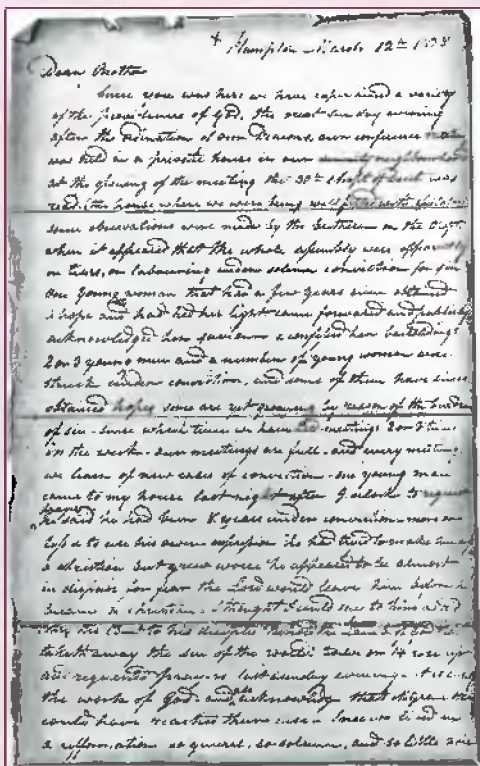 Plympton March 12th
Dear Brother
Since you was here we have experienced a variety
of the providences of God. the next sunday evening
after the ordination of our deacons, our conference
was held in a private house in our
at the of the meeting the 30th chapt of was
read the house where we were being well with
some observations were made by the brethren on the Chapt
when it appeared that the whole assembly were
in tears, or labouring under solemn conviction for sin
One young woman that had a few years since obtained
a hope and had hid her light came forward and publicly
acknowledged her saviour & confessed her backslidings
2 or 3 young men and a number of young women were
struck under conviction, and some of them have since
obtained hopes some are yet groaning by reason of the burden
of sin - since which time we have had meetings 2 or 3 times
in the week - our meetings are full - and every meeting
we learn of new cases of conviction - one young man
came to my house last night after 9 oclock to request
prayers he said he had been 8 years under conviction - more or
less to use his own expression he had tried to make himself
a christian but grew worse he appeared to be almost
in despair for fear the Lord would leave him before he
became a christian - I thought I could say to him as
John the to his disciples behold the Lamb of God that
taketh away the sin of the world 12 or 14 rose up
and requested prayers last sunday evening -
the work of God and acknowledge that
could have reached them I never lived in
a reformation so general, so solemn, and so little noise